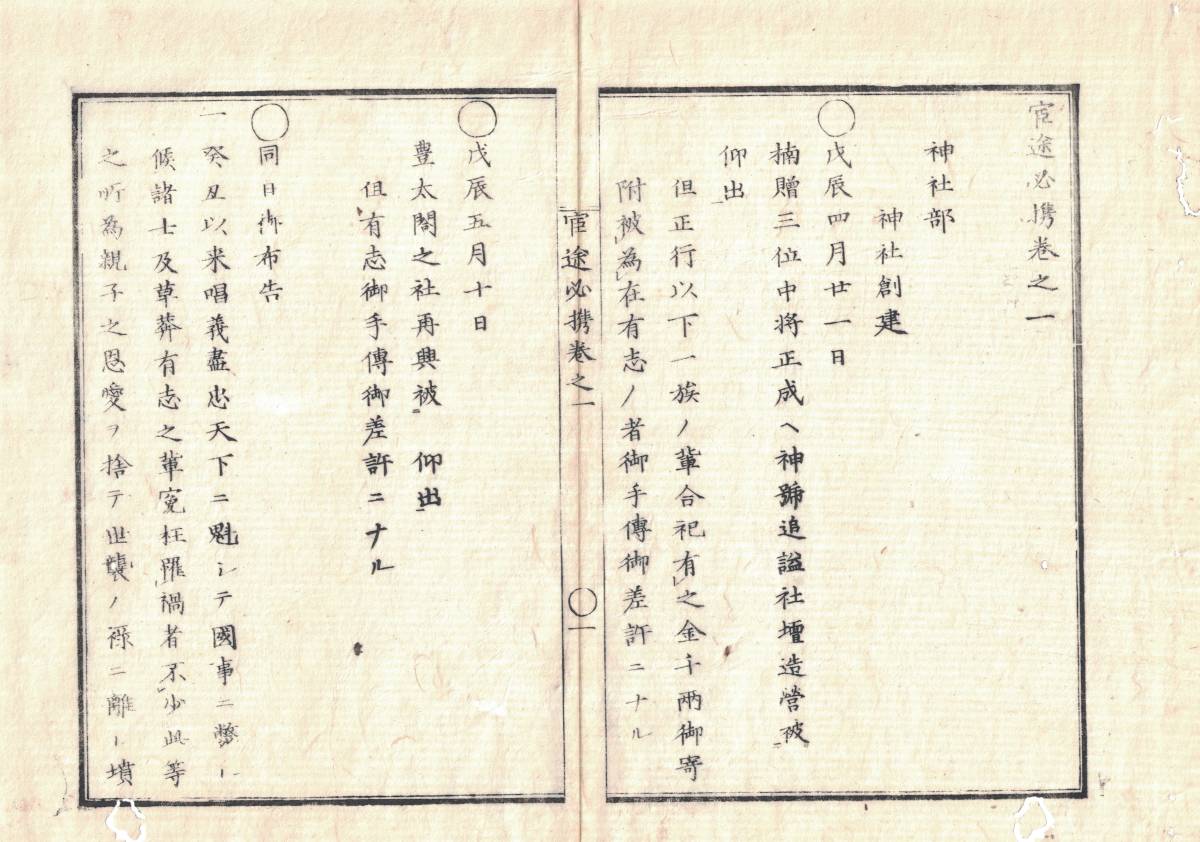 官途必携巻之一
神社部
神社創建
○戊辰四月廿一日
楠贈三位中将正成ヘ神號追謚社壇造營被
仰出
但正行以下一族ノ輩合祀有之金千兩御寄
附被為在有志ノ者御手傳御差許ニナル
官途必携巻之一
○一
○戊辰五月十日
豊太閤之社再興被 仰出
但有志御手傳御差許ニナル
○同日御布告
一癸丑以来唱義盡忠天下ニ魁シテ國事ニ斃レ
候諸士及草莽有志之輩寃枉罹禍者不少此等
之所為親子之恩愛ヲ捨テ世襲ノ祿ニ離レ墳